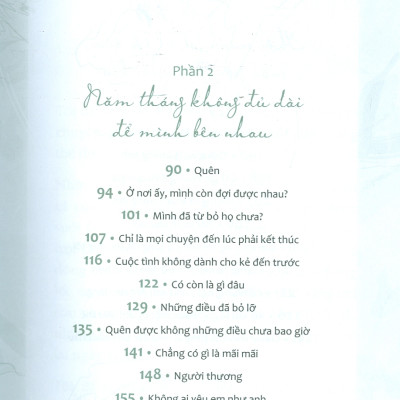 Phần 2
Năm tháng không đủ dài
để mình bên nhau
90 • Quên
94 • Ở nơi ấy, mình còn đợi được nhau?
101 • Mình đã từ bỏ họ chưa?
107 • Chỉ là mọi chuyện đến lúc phải kết thúc
116 • Cuộc tình không dành cho kẻ đến trước
122 • Có còn là gì đâu
129 • Những điều đã bỏ lỡ
135 • Quên được không những điều chưa bao giờ
141 • Chẳng có gì là mãi mãi
148 • Người thương
155 • Không ai yêu em như anh